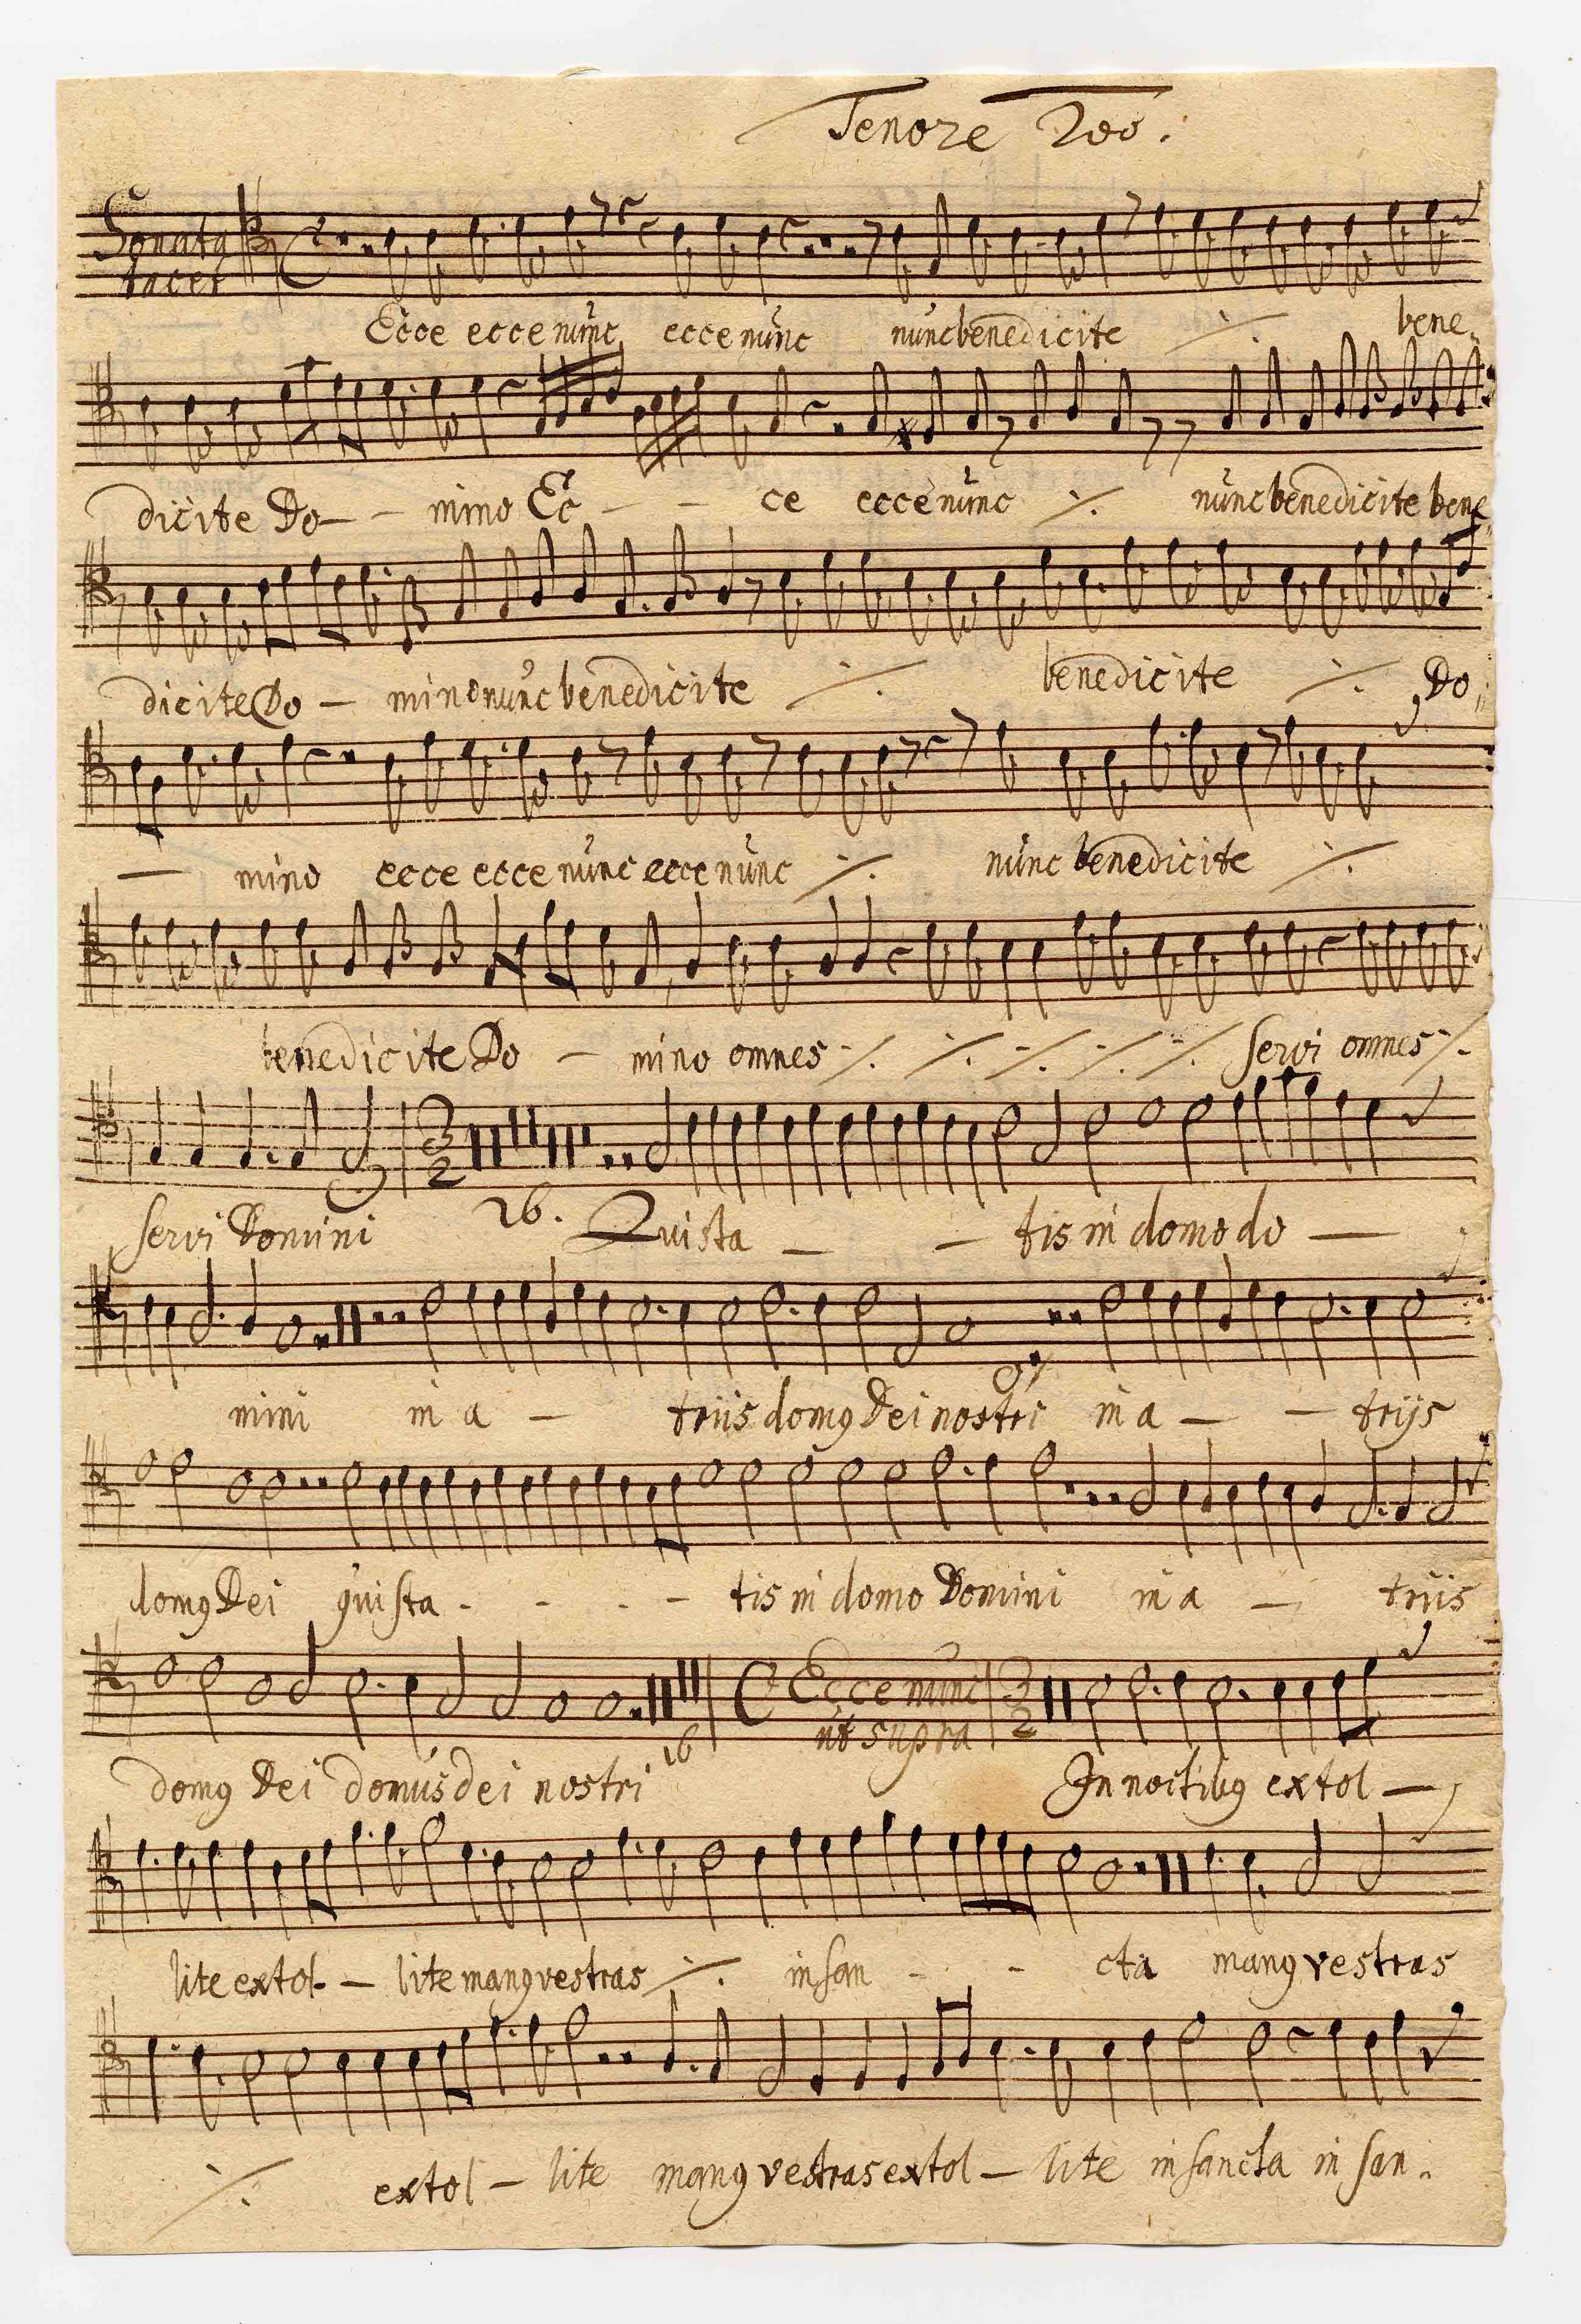 Tenore 2do.
Sonata
tacet
Ecce ecce nunc ecce nunc nunc benedicite ·/. bene
dicite Do - - mino Ec - - ce ecce nunc ·/. nunc benedicite bene
dicite Do - mino nunc benedicite ·/. benedicite ·/. Do
- mino ecce ecce nunc ecce nunc ·/. nunc benedicite ·/.
benedicite Do - mino omnes ·/. ·/. ·/. ·/. ·/. servi omnes ·/.
3
2
servi Domini 26. Qui sta - - tis in domo do -
mini in a - triis domg Dei nostri in a - - trijs
domg Dei qui sta - - - - tis in domo Domini in a - triis
C Ecce nunc 3
ut supra 2
domg Dei domus dei nostri 16 In noctibg extol -
lite extol - lite mang vestras ·/. in san - - cta mang vestras
·/. extol - lite mang vestras extol - lite in sancta in san